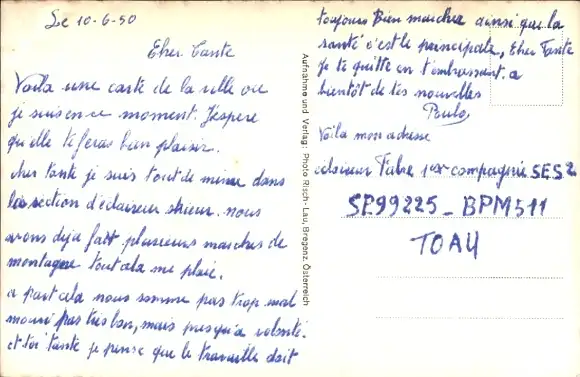 Le 10-6-50
Cher Tante
Voila une carte de la ville ou
je suis en ce moment. J'éspère
qu'elle te feras bien plaisir.
cher tante je suis tout de même dans
la section d'éclaireur skieur. nous
avons déja fait plusieurs marches de
montagne tout cela me plaie.
a part cela nous somme pas trop mal
mouri pas très bon, mais presqu'a volonté.
et toi tante je pense que le travaille doit
toujours Bien marcher ainsi que la
santé c'est le principale, Cher Tante
Je te quitte en t'embrassant. a
bientôt de tes nouvelles
Voila mon adresse
eclaireur Fabre 1er compagnie SES 2
SP99225 - BPM511
TOA4
Aufnahme und Verlag: Photo Risch-Lau, Bregenz, Österreich